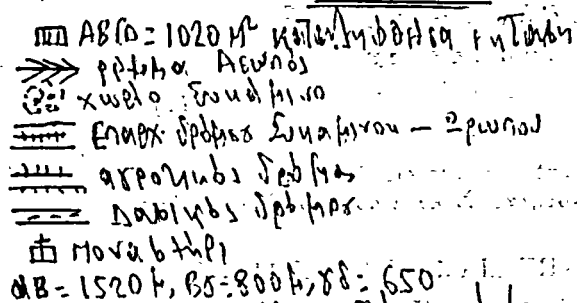 ΑΒΓΔ = 1020 Μ² καταληφθείσα έκτασις
ρεύμα Ασωπός
χωρίο Συκάμινο
Επαρχ. δρόμος Συκαμίνου - Ωρωπού
αγροτικός δρόμος
Δασικός δρόμος
Μοναστήρι
αΒ = 1520 μ, Βδ = 800 μ, γδ = 650